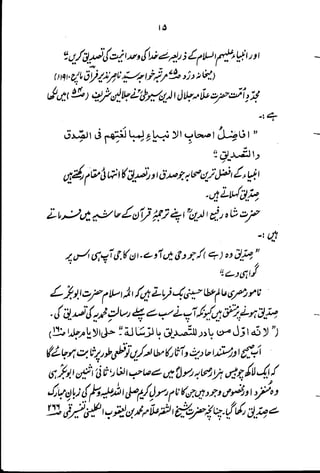 ۱۵
اور انبیاء علیہم السلام کے ذریعہ سے خدا کی وحدانیت کی تصدیق کریں"
مجدد امت حضرت علامہ جلال الدین سیوطی نے جلالین شریف میں لکھا
ہے :-
" افاضل اصحاب الانبیاء لمبالغتهم فی الصدق
والتصدیق"
انبیاء کے افضل ترین صحابہ جو صدق اور تصدیق کا انتہائی مقام رکھتے ہیں
صدیق کہلاتے ہیں۔
حضرت شاہ رفیع الدین اپنے ترجمہ قرآن کے حاشیہ میں فرماتے
ہیں :-
"صدیق وہ کہ جو وحی میں آوے۔ ان کا جی آپ ہی اس پر
گواہی دے"
نامور مصری عالم فرماتے ہیں کہ اللہ اسلام حضرت ابوبکرؓ کے
صدیق ہونے پر متفق ہیں کیونکہ آپ نے سب سے پہلے رسالت محمدیہ کی تصدیق کی۔
("لانه اول من بادر للتصدیق بالرسالة"
آپ صحیح اور مستند احادیث و آثار کا مطالعہ کریں تو قطعی طور پر ثابت ہو جائے گا
کہ ایک لاکھ چوبیس ہزار صحابہ رسولؐ میں سے صاحب الغار ثانی اثنین ابوبکرؓ ہی
وہ منفرد اور مخصوص وجود ہیں جن کا نام رسول کریم صلی اللہ علیہ وسلم کی زبان مبارک
سے صدیق رکھا گیا۔ چنانچہ حضرت شیخ الثقہ علامہ محمد بن یعقوب الکلینی متوفی